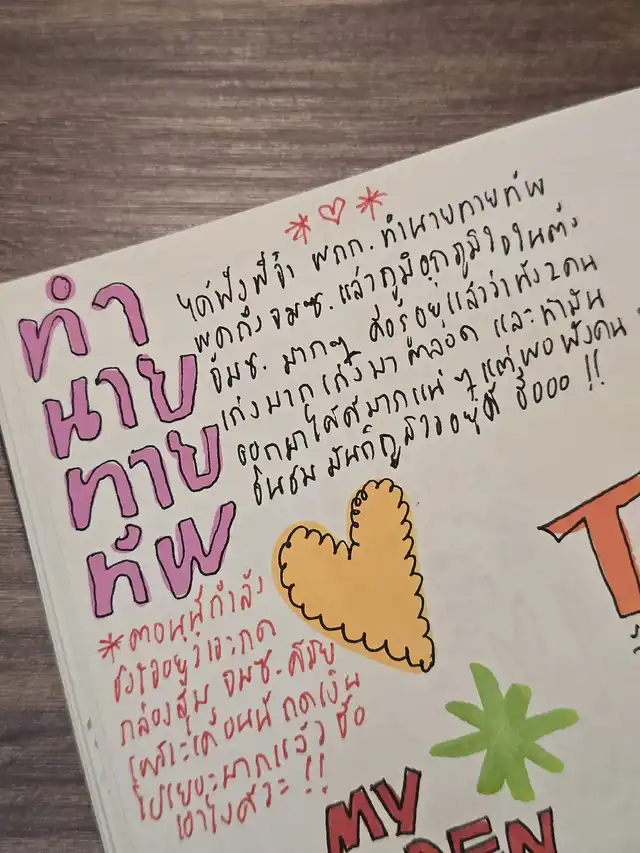 ทำ
นาย
ทาย
ทัพ
ได้ฟังพี่จ๋า ผกก. ทำนายทายทัพ
พูดถึง จมซ. แล้วภูมิอกภูมิใจในตัว
จมซ. มากๆ คือรู้อยู่แล้วว่าทั้ง 2 คน
เก่งมากเก่งมาตลอด และทำมัน
ออกมาได้ดีมากแน่ๆ แต่พอฟังคน
ชื่นชม มันก็ภูมิใจอยู่ดี ฮืออออ !!
*ตอนนี้กำลัง
ชั่งใจอยู่ว่าจะกด
กล่องสุ่ม จมซ. ดีมั้ย
เพราะเดือนนี้ กดเงิน
ไปเยอะมากแล้ว ฮือ
เอาไงดีวะ !!
MY